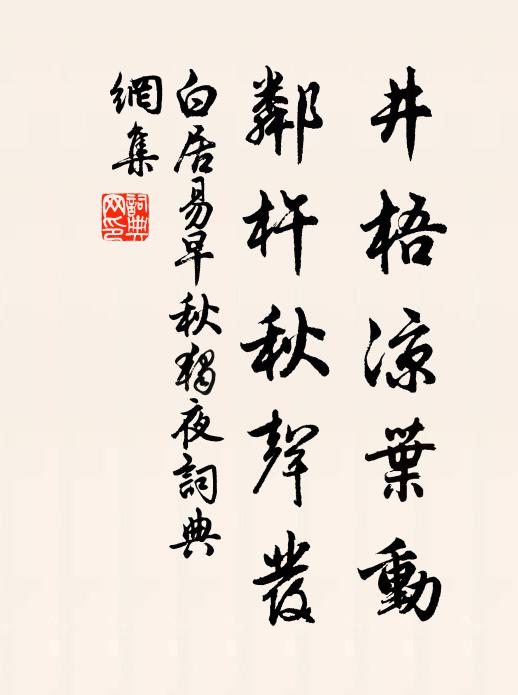 井梧涼葉動
鄰杵秋聲發
白居易早秋獨夜詞典
網集
詞典網印